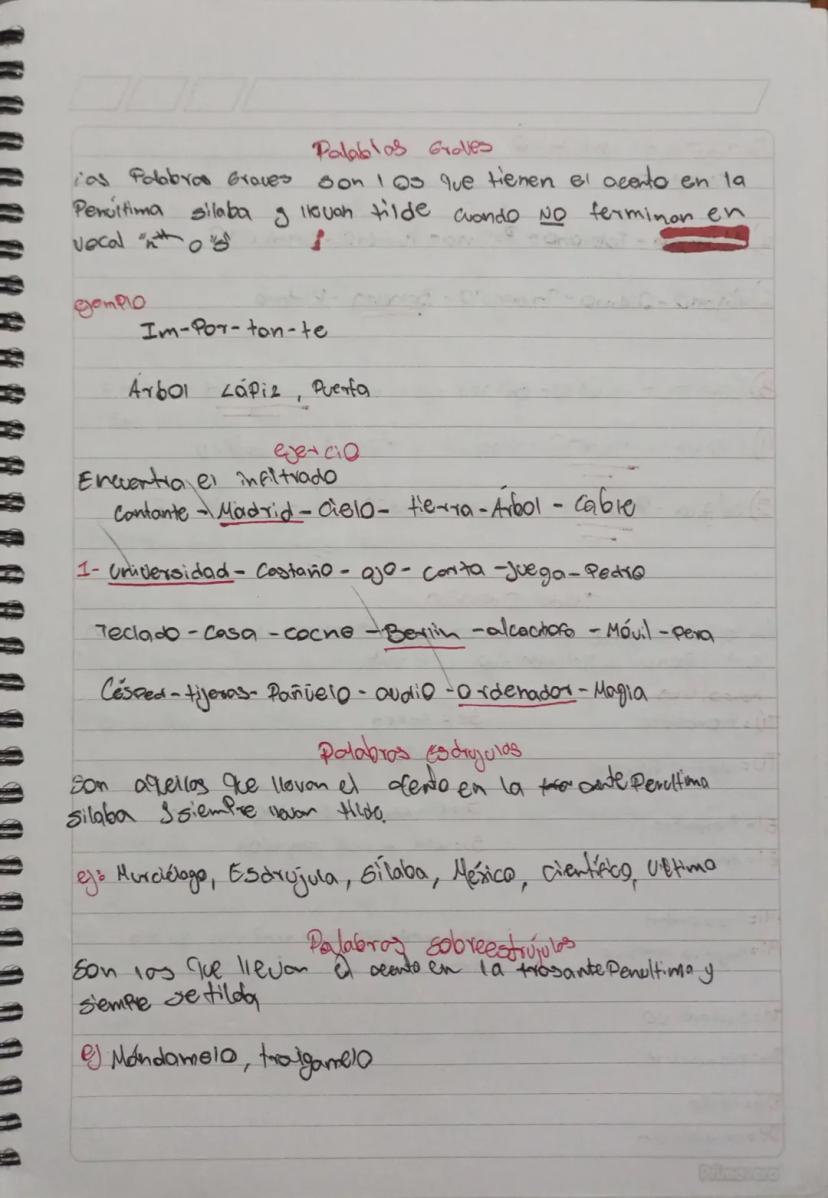 Palabras Graves
las Palabras Graves son las que tienen el acento en la
Penúltima silaba y llevan tilde cuando NO terminan en
vocal "n" o "s"
ejemplo
Im-Por-tan-te
Árbol Lápiz, Puerta
ejercio
Encuentra el infiltrado
Cantante - Madrid - Cielo - tierra - Árbol - Cable
1- Universidad - Castaño - ojo - carta - Juega - Pedro
Teclado - Casa - coche - Berlin - alcachofa - Móvil - Pera
Césped - tijeras - Pañuelo - audio - Ordenador - Magia
Palabras Esdrujulas
Son aquellas que llevan el acento en la antePenultima
silaba y siempre llevan tilde.
ej: Murciélago, Esdrújula, Sílaba, México, Científico, Ultimo
Palabras sobreestrújulas
Son las que llevan el acento en la trasantePenultima y
siempre se tilda
ej Mándamelo, traigamelo
Primavera